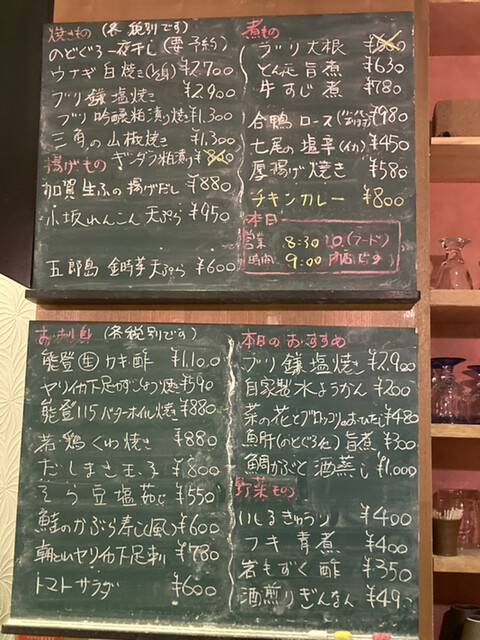 焼きもの (各税別です)
のどぐろ一夜干し (要予約)
ウナギ白焼き ¥2,700
ブリ鎌塩焼き ¥2,900
ブリ吟醸粕漬け焼 ¥1,300
三角の山椒焼き ¥1,300
揚げもの
ギンダラ粕漬
加賀生ふの揚げだし ¥880
小坂れんこん天ぷら ¥950
五郎島金時芋天ぷら ¥600
煮もの
ブリ大根
とん足旨煮 ¥630
牛すじ煮 ¥780
合鴨ロース ¥980
七尾の塩辛(イカ) ¥450
厚揚げ焼き ¥580
チキンカレー ¥800
本日
営業 8:30 L.O.(フード)
時間 9:00
お刺身 (各税別です)
能登生カキ酢 ¥1,100
ヤリイカ下足 ¥590
能登115バターオイル焼 ¥880
若鶏くわ焼き ¥880
だしまき玉子 ¥800
そら豆塩茹で ¥550
鮭のかぶら寿し風 ¥600
朝どれヤリイカ下足刺 ¥780
トマトサラダ ¥600
本日のおすすめ
ブリ鎌塩焼き ¥2,900
自家製水ようかん ¥200
菜の花とブロッコリのおひたし ¥480
魚肝(のどぐろ他)旨煮 ¥300
鯛かぶと酒蒸し ¥1,000
野菜もの
いしるきゅうり ¥400
フキ青煮 ¥400
岩もずく酢 ¥350
酒煎りぎんなん